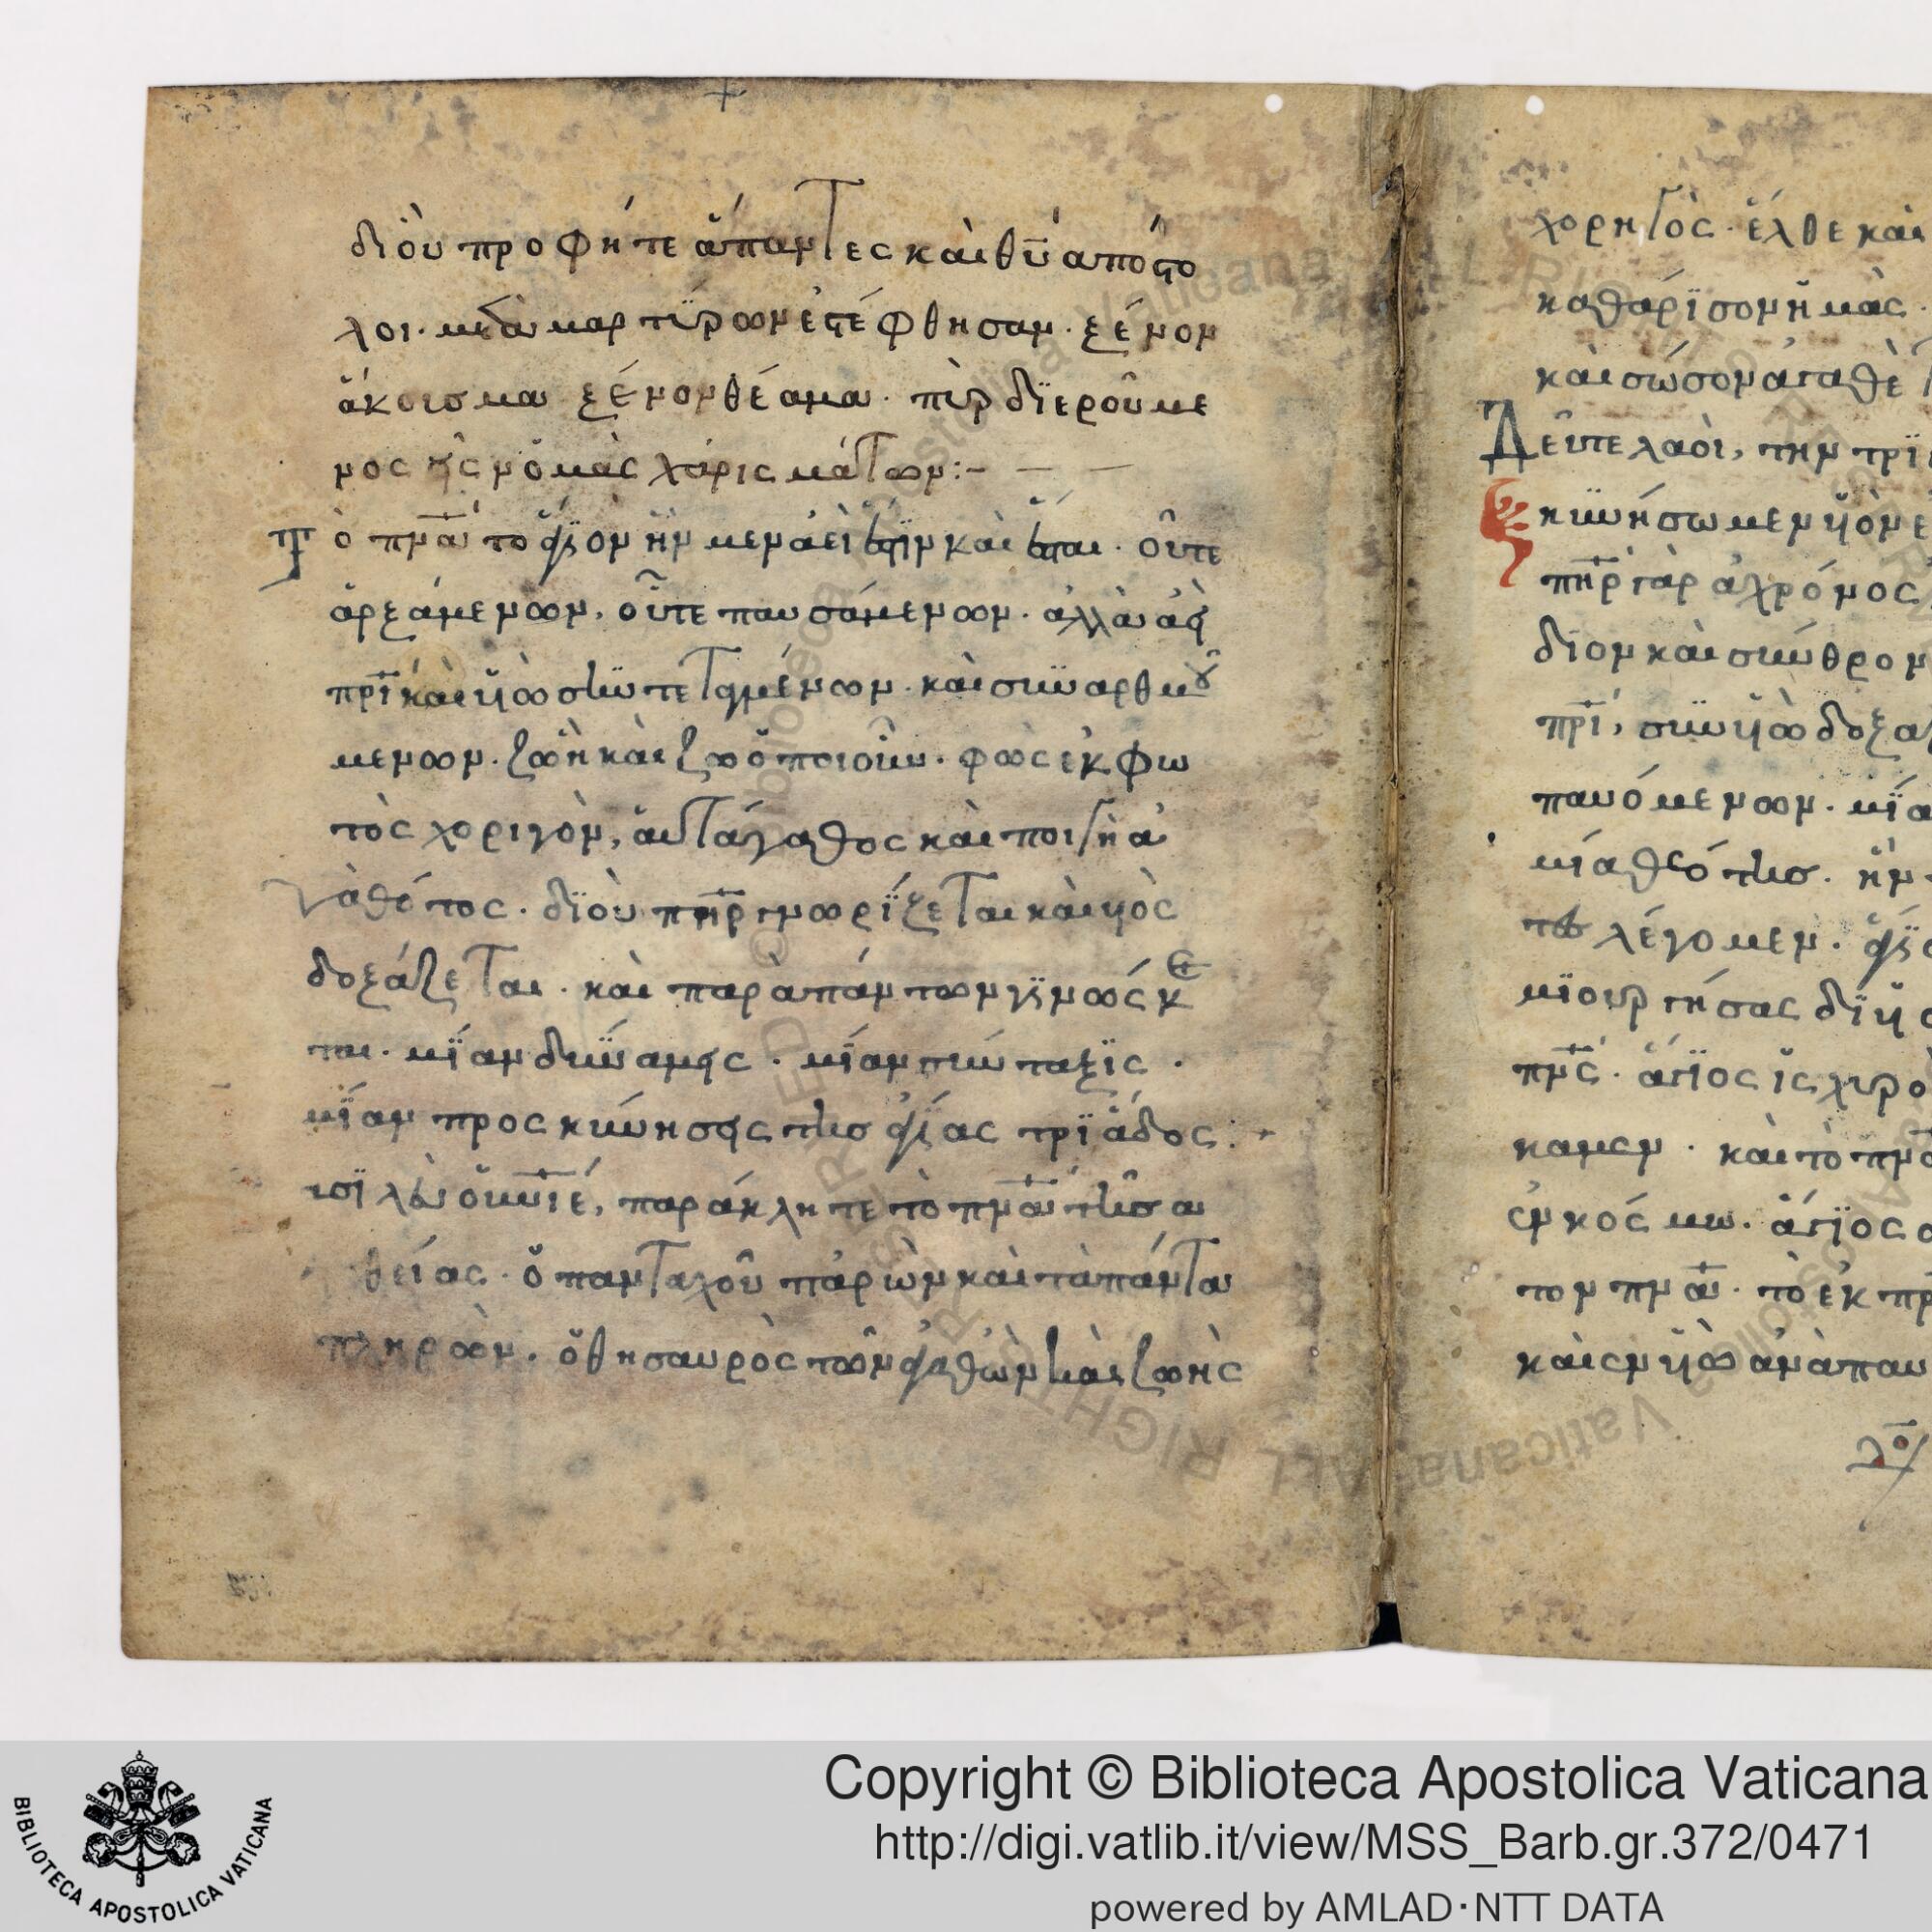 διοὺ προφήτε ἅπαντες καὶ θῦ ἀπόστο
λοι· μεδὰ μαρτύρων ἐστέφθησαν· ξένον
ἄκουσμα ξένον θέαμα· πὺρ διεροῦμε
νος εἰς νομὰς χάρις μάτων:–
Τὸ πνᾶ τὸ ἅγϊον ἦν μὲν ἀεὶ ἐστϊν καὶ ἔσται· οὔτε
ἀρξάμενων, οὔτε παυσάμενων· ἀλλὰ ἀεὶ
πρῒ καὶ υἱῶ στὺντεταγμένων· καὶ σὺναρθμού
μενων· ζωὴ καὶ ζωὸποιοῦν· φῶς ἐκ φω
τὸς χοριγὸν, αὐτάγαθος καὶ ποιγὴ ἀ
γαθότος· διοὺ πὴρ γνωρίζεται καὶ υἱὸς
δοξάζεται· καὶ παρὰ πάντων γϊνώσκε
ται· μίαν δυνάμεις· μίαν σύνταξϊς·
μίαν προσκύνησεις τῆσ ἁγίας τρϊάδος:
σϊλεὺ οὐνιέ, παράκλητε τὸ πνᾶ τῆσ ἀ
θείας· ὁ πανταχοῦ παρὼν καὶ τὰ πάντα
πληρῶν· ὁ θησαυρὸς τῶν ἀγαθὼν καὶ ζωῆς
χορηγὸς· ἐλθε καὶ
καθάρϊσον ἡμὰς·
καὶ σώσον ἀγαθὲ
Δεῦτε λαοὶ, τὴν τρϊ
κϋνήσωμεν υἱὸν ε
πὴρ γὰρ ἀχρόνος
δϊον καὶ σύνθρον
πρϊ, σὺν υἱῶ δοξα
παυόμενων· μίΐα
μία θεότησ· ἦν
τω λέγομεν· ἅγϊ
μϊουργήσας δι υἱ
πνς· ἅγϊος ἰσχυρο
καμεν· καὶ τὸ πν
ἐνκόσμω· ἅγϊος
τον πνᾶ· τὸ ἐκ πρ
καὶ ἐν υἱῶ ἀνάπαυ
Copyright © Biblioteca Apostolica Vaticana
http://digi.vatlib.it/view/MSS_Barb.gr.372/0471
powered by AMLAD·NTT DATA
BIBLIOTECA APOSTOLICA VATICANA